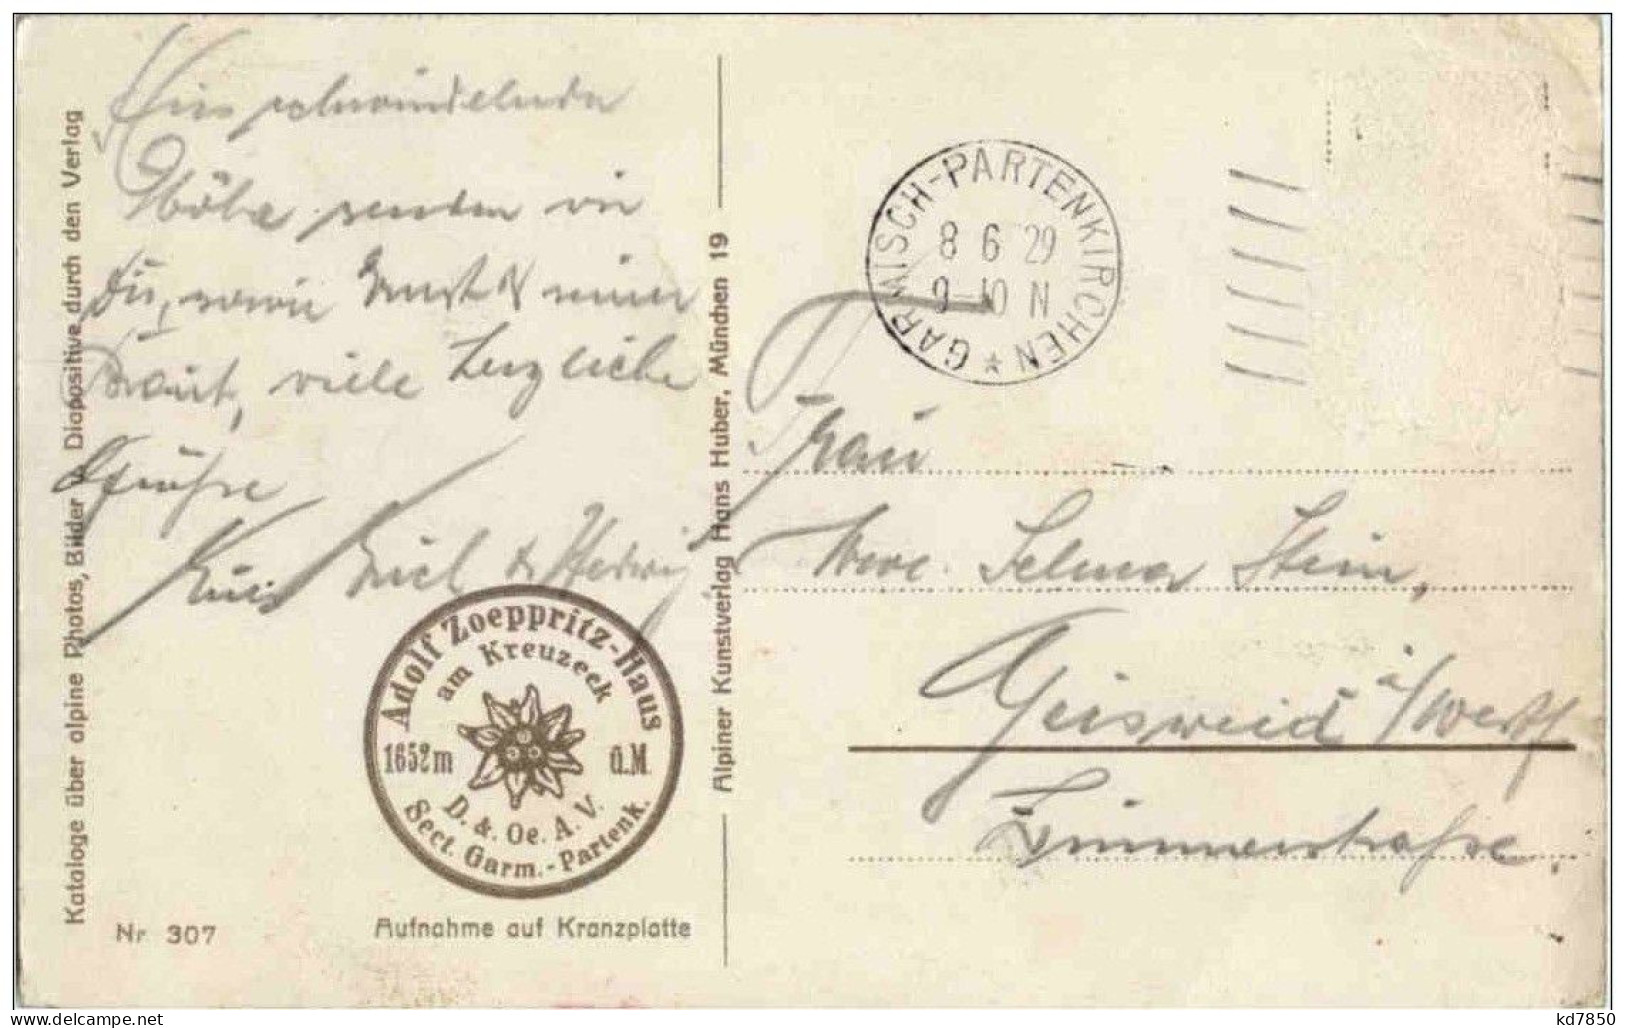 Aus schwindelnder
Höhe senden wir
Dir, sowie Ernst & seiner
Braut, viele herzliche
Grüsse
Erich & Hedwig
Frau
Wwe. Selma Stein,
Geisweid i/Westf
Zimmerstraße.
GARMISCH-PARTENKIRCHEN
8 6 29
9-10 N
Adolf Zoeppritz-Haus
am Kreuzeck
1652m ü.M.
D. & Oe. A. V.
Sect. Garm.-Partenk.
Kataloge über alpine Photos, Bilder & Diapositive durch den Verlag
Alpiner Kunstverlag Hans Huber, München 19
Nr 307
Aufnahme auf Kranzplatte
kd7850